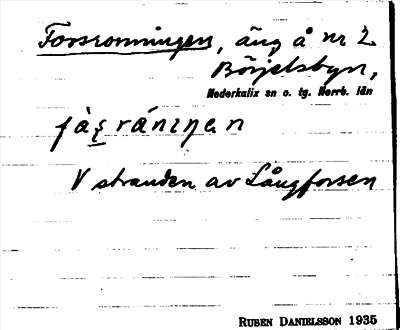 Forsronningen, äng å nr 2
Börjelsbyn,
Nederkalix sn o. tg. Norrb. län
V stranden av Långforsen
RUBEN DANIELSSON 1935